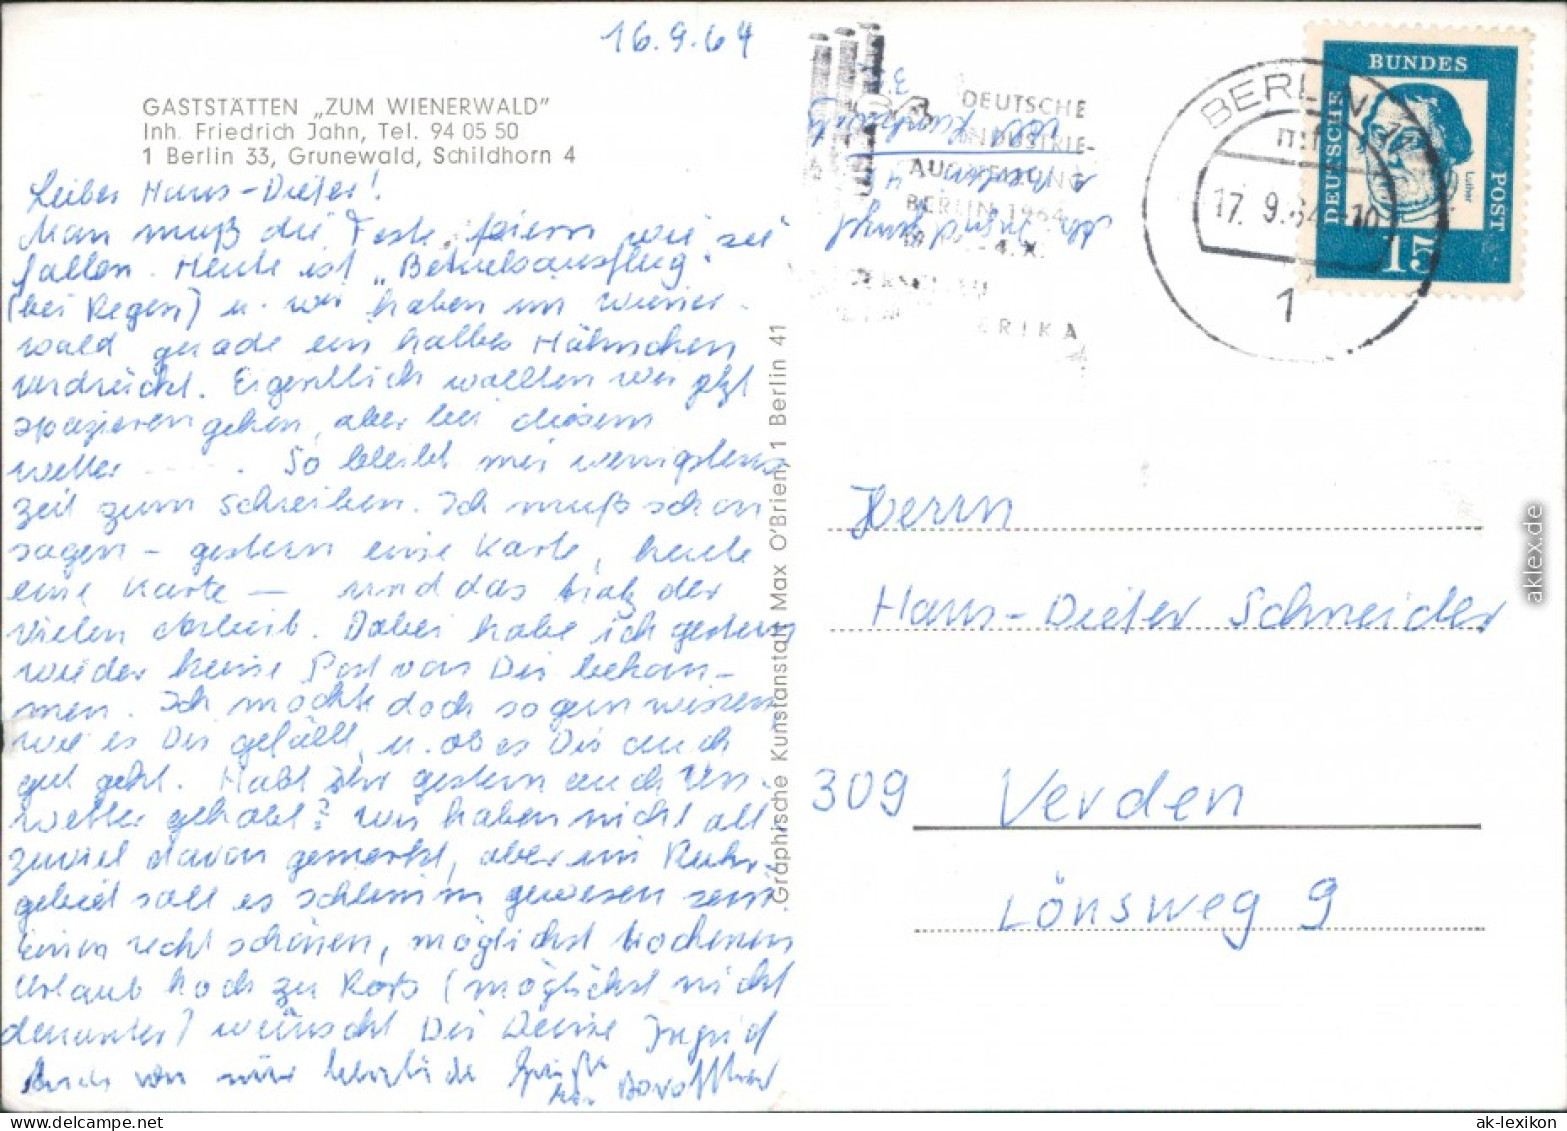 16.9.64
GASTSTÄTTEN „ZUM WIENERWALD"
Inh. Friedrich Jahn, Tel. 94 05 50
1 Berlin 33, Grunewald, Schildhorn 4
Lieber Hans-Dieter!
Man muß die Feste feiern wie sie
fallen. Heute ist „Betriebsausflug"
(bei Regen) u. wir haben im Wiener-
wald gerade ein halbes Hähnchen
verdrückt. Eigentlich wollten wir jetzt
spazieren gehen, aber bei diesem
Wetter . So bleibt mir wenigstens
Zeit zum Schreiben. Ich muß schon
sagen – gestern eine Karte, heute
eine Karte – und das trotz der
vielen Arbeit. Dabei habe ich gestern
wieder keine Post von Dir bekom-
men. Ich möchte doch so gern wissen
wie es Dir gefällt u. ob es Dir auch
gut geht. Habt Ihr gestern auch Un-
wetter gehabt? Wir haben nicht all-
zuviel davon gemerkt, aber im Ruhr-
gebiet soll es schlimm gewesen sein.
Einen recht schönen, möglichst trockenen
Urlaub hoch zu Roß (möglichst nicht
darunter) wünscht Dir Deine Ingrid
Auch von mir herzliche Grüße
Graphische Kunstanstalt Max O'Brien, 1 Berlin 41
1 Berlin 4
DEUTSCHE
INDUSTRIE-
AUSSTELLUNG
BERLIN 1964
4.X.
BERLIN 11
17.9.64 10
1
BUNDES
POST
DEUTSCHE
Luther
15
Herrn
Hans-Dieter Schneider
309 Verden
Lönsweg 9
aklex.de
ak-lexikon